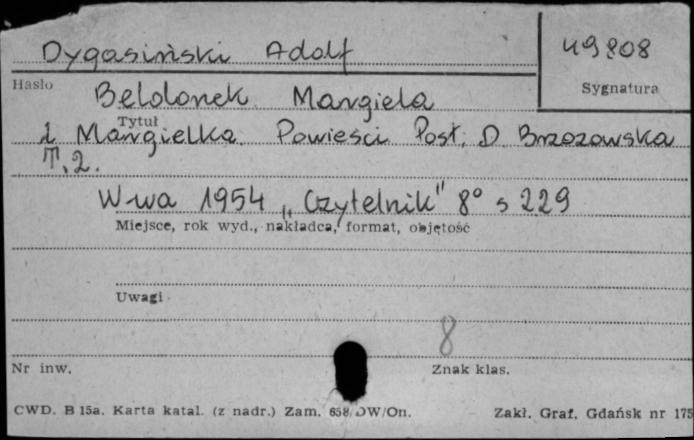 Dygasiński Adolf 49808
Hasło Sygnatura
Beldonek. Margiela
Tytuł
i Margielka. Powieści Post. D. Brzozowska
T. 2.
W-wa 1954 „Czytelnik" 8° s 229
Miejsce, rok wyd., nakładca, format, objętość
Uwagi
8
Nr inw. Znak klas.
CWD. B 15a. Karta katal. (z nadr.) Zam. 658/DW/On. Zakł. Graf. Gdańsk nr 175